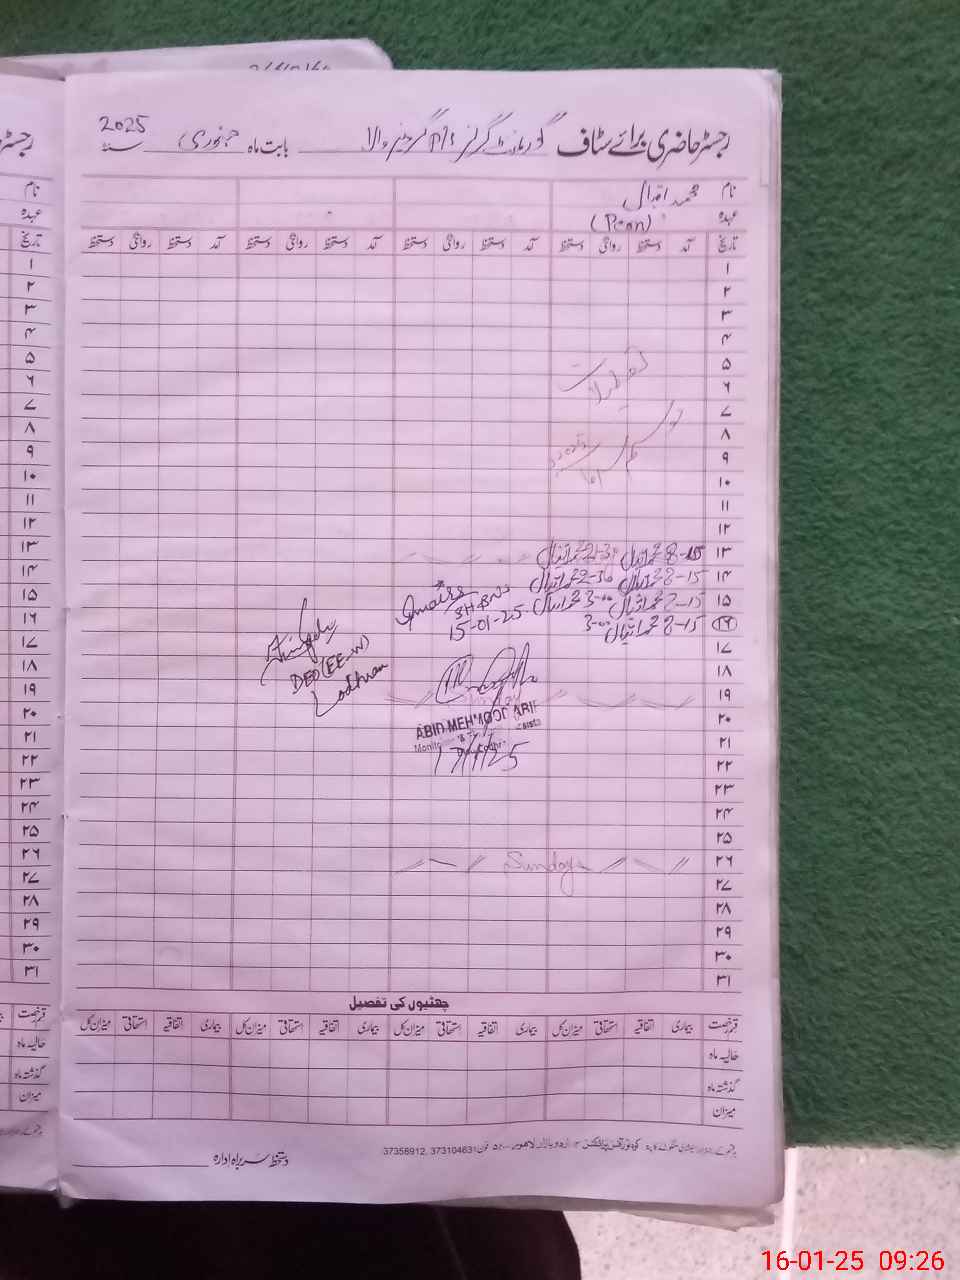 رجسٹر حاضری برائے سٹاف گورنمنٹ گرلز P/S بابت ماہ جنوری سنہ 2025
نام محمد اقبال
عہدہ (Peon)
تاریخ آمد دستخط روانگی دستخط آمد دستخط روانگی دستخط آمد دستخط روانگی دستخط آمد دستخط روانگی دستخط
۱
۲
۳
۴
۵
۶ تعطیلات
۷
۸ موسم
۹ سرما 2025
۱۰
۱۱
۱۲
۱۳ 8-15 محمد اقبال محمد اقبال
۱۴ 8-15 محمد اقبال 2-30 محمد اقبال
۱۵ 8-15 محمد اقبال 3-00 محمد اقبال
۱۶ 8-15 محمد اقبال 3-00
15-01-25
DEO (EE-W)
Lodhran
۱۷
۱۸
۱۹ Sunday
۲۰
ABID MEHMOOD ARIF
۲۱
17/1/25
۲۲
۲۳
۲۴
۲۵
۲۶ Sunday
۲۷
۲۸
۲۹
۳۰
۳۱
چھٹیوں کی تفصیل
قسم رخصت بیماری اتفاقیہ استحقاقی میزان کل بیماری اتفاقیہ استحقاقی میزان کل بیماری اتفاقیہ استحقاقی میزان کل بیماری اتفاقیہ استحقاقی میزان کل
حالیہ ماہ
گذشتہ ماہ
میزان
اردو بازار لاہور فون 37358912, 373104631
دستخط سربراہ ادارہ
16-01-25 09:26